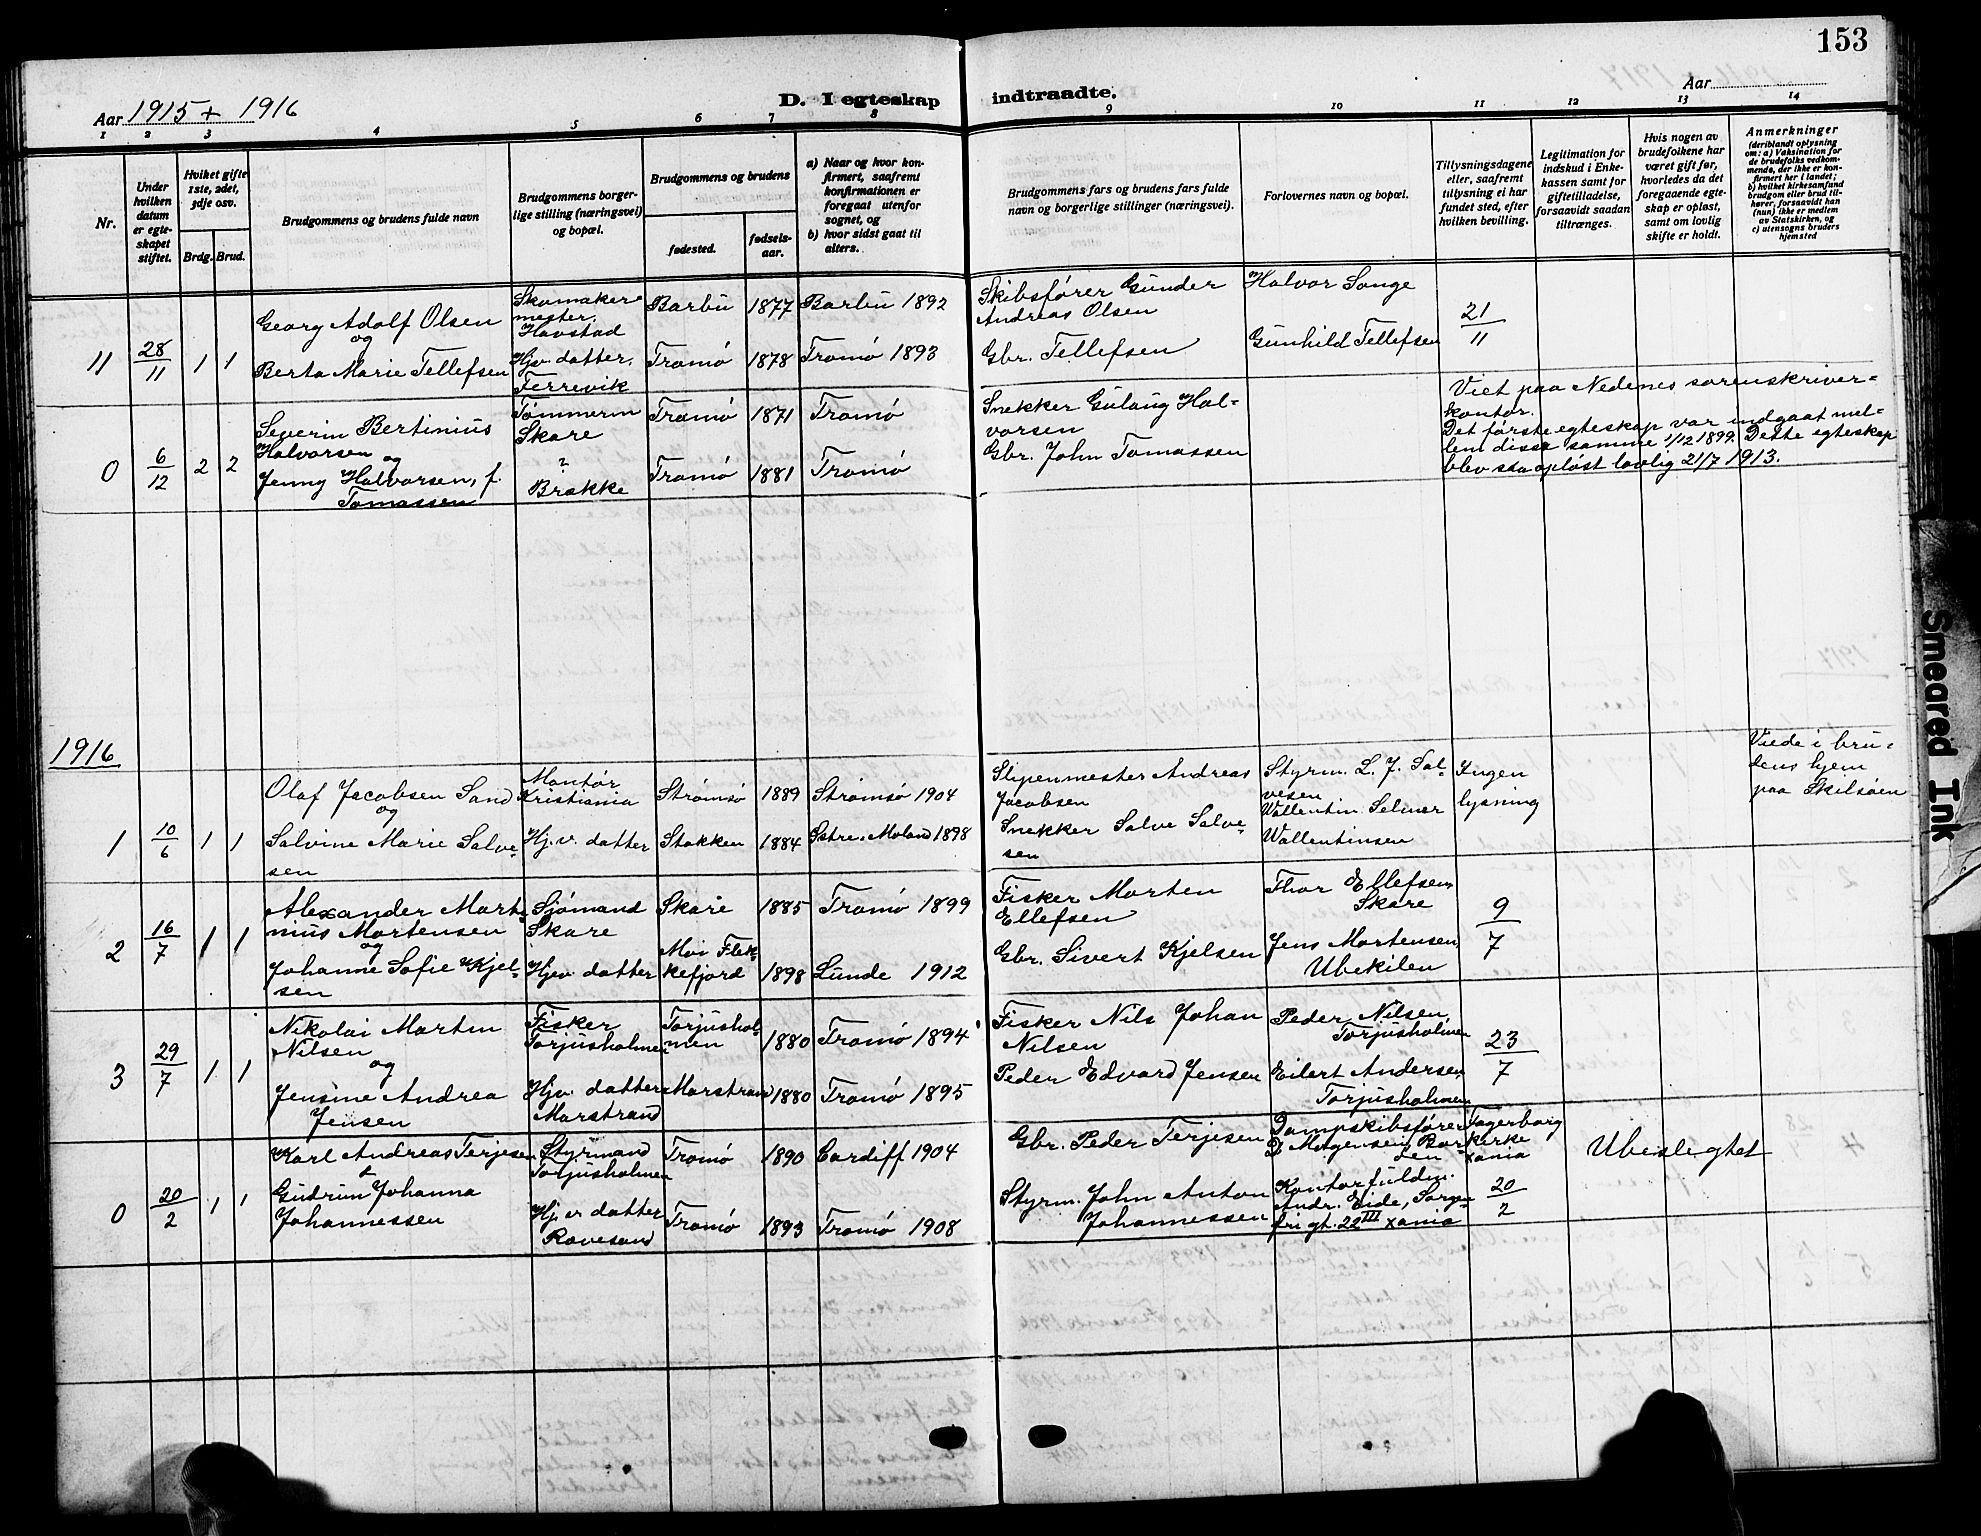 153
Aar 1915 + 1916
D. I egteskap indtraadte.
Aar
1 2 3 4 5 6 7 8 9 10 11 12 13 14
Nr.
Under hvilken datum er egteskapet stiftet.
Hvilket gifte 1ste, 2det, 3dje osv.
Brdg. Brud.
Brudgommens og brudens fulde navn
Brudgommens borgerlige stilling (næringsvei) og bopæl.
Brudgommens og brudens
fødested.
fødselsaar.
a) Naar og hvor konfirmert, saafremt konfirmationen er foregaat utenfor sognet, og
b) hvor sidst gaat til alters.
Brudgommens fars og brudens fars fulde navn og borgerlige stillinger (næringsvei).
Forlovernes navn og bopæl.
Tillysningsdagene eller, saafremt tillysning ei har fundet sted, efter hvilken bevilling.
Legitimation for indskud i Enkekassen samt for giftetilladelse, forsaavidt saadan tiltrænges.
Hvis nogen av brudefolkene har været gift før, hvorledes da det foregaaende egteskap er opløst, samt om lovlig skifte er holdt.
Anmerkninger
(deriblandt oplysning om: a) Vaksination for de brudefolks vedkommende, der ikke er konfirmert her i landet;
b) hvilket kirkesamfund brudgom eller brud tilhører, forsaavidt han (hun) ikke er medlem av Statskirken, og
c) utensogns bruders hjemsted
11 28/11 1 1
Georg Adolf Olsen
og
Berta Marie Tellefsen
Skomakermester.
Havstad
Hjv. datter.
Færrevik
Barbu 1877 Barbu 1892
Tromø 1878 Tromø 1893
Skibsfører Gunder
Andreas Olsen
Gbr. Tellefsen
Halvor Songe
Gunhild Tellefsen
21/11
0 6/12 2 2
Severin Bertinius
Halvorsen og
Jenny Halvorsen, f.
Tomassen
Tømmerm
Skare
?
Brække
Tromø 1871 Tromø
Tromø 1881 Tromø
Snekker Gulaug Halvorsen
Gbr. John Tomassen
Viet paa Nedenes sorenskriver=
kontor.
Det første egteskap var indgaat mel=
lem disse samme 1/12 1899. Dette egteskap
blev saa opløst lovlig 21/7 1913.
1916
1 10/6 1 1
Olaf Jacobsen Sand
og
Salvine Marie Salve=
sen
Montør
Kristiania
Hj.v. datter
Strømsø 1889 Strømsø 1904
Stokken 1884 Østre-Moland 1898
Slipenmester Andreas
Jacobsen
Snekker Salve Salve=
sen
Styrm. L. J. Sal=
vesen
Wallentin Selmer
Wallentinsen
Ingen
lysning
Viede i bru=
dens hjem
paa Skilsøen
2 16/7 1 1
Alexander Mart=
nius Mortensen
og
Johanne Sofie Kjel=
sen
Sjømand
Skare
Hjv. datter
Skare 1885 Tromø 1899
Moi Flek=
kefjord 1898 Lunde 1912
Fisker Morten
Ellefsen
Gbr. Sivert Kjelsen
Thor Ellefsen,
Skare
Jens Mortensen,
Ubekilen
9/7
3 29/7 1 1
Nikolai Martin
Nilsen
og
Jensine Andrea
Jensen
Fisker
Torjusholmen
Hjv. datter
Marstrand
Torjushol=
men 1880 Tromø 1894
Marstrand 1880 Tromø 1895
Fisker Nils Johan
Nilsen
Peder Edvard Jensen
Peder Nilsen,
Torjusholmen
Eilert Andersen,
Torjusholmen
23/7
0 20/2 1 1
Karl Andreas Terjesen
&
Gudrun Johanna
Johannessen
Styrmand
Torjusholmen
Hj.v. datter
Rævesand
Tromø 1890 Cardiff 1904
Tromø 1893 Tromø 1908
Gbr. Peder Terjesen
Styrm. John Anton
Johannessen
Dampskibsfører
Kontorfuldm.
Andr. Eide, Sorgen=
fri gt. 22 III Xania
Fagerborg
kirke
Xania
20/2
Ubeslegtet
Smeared Ink